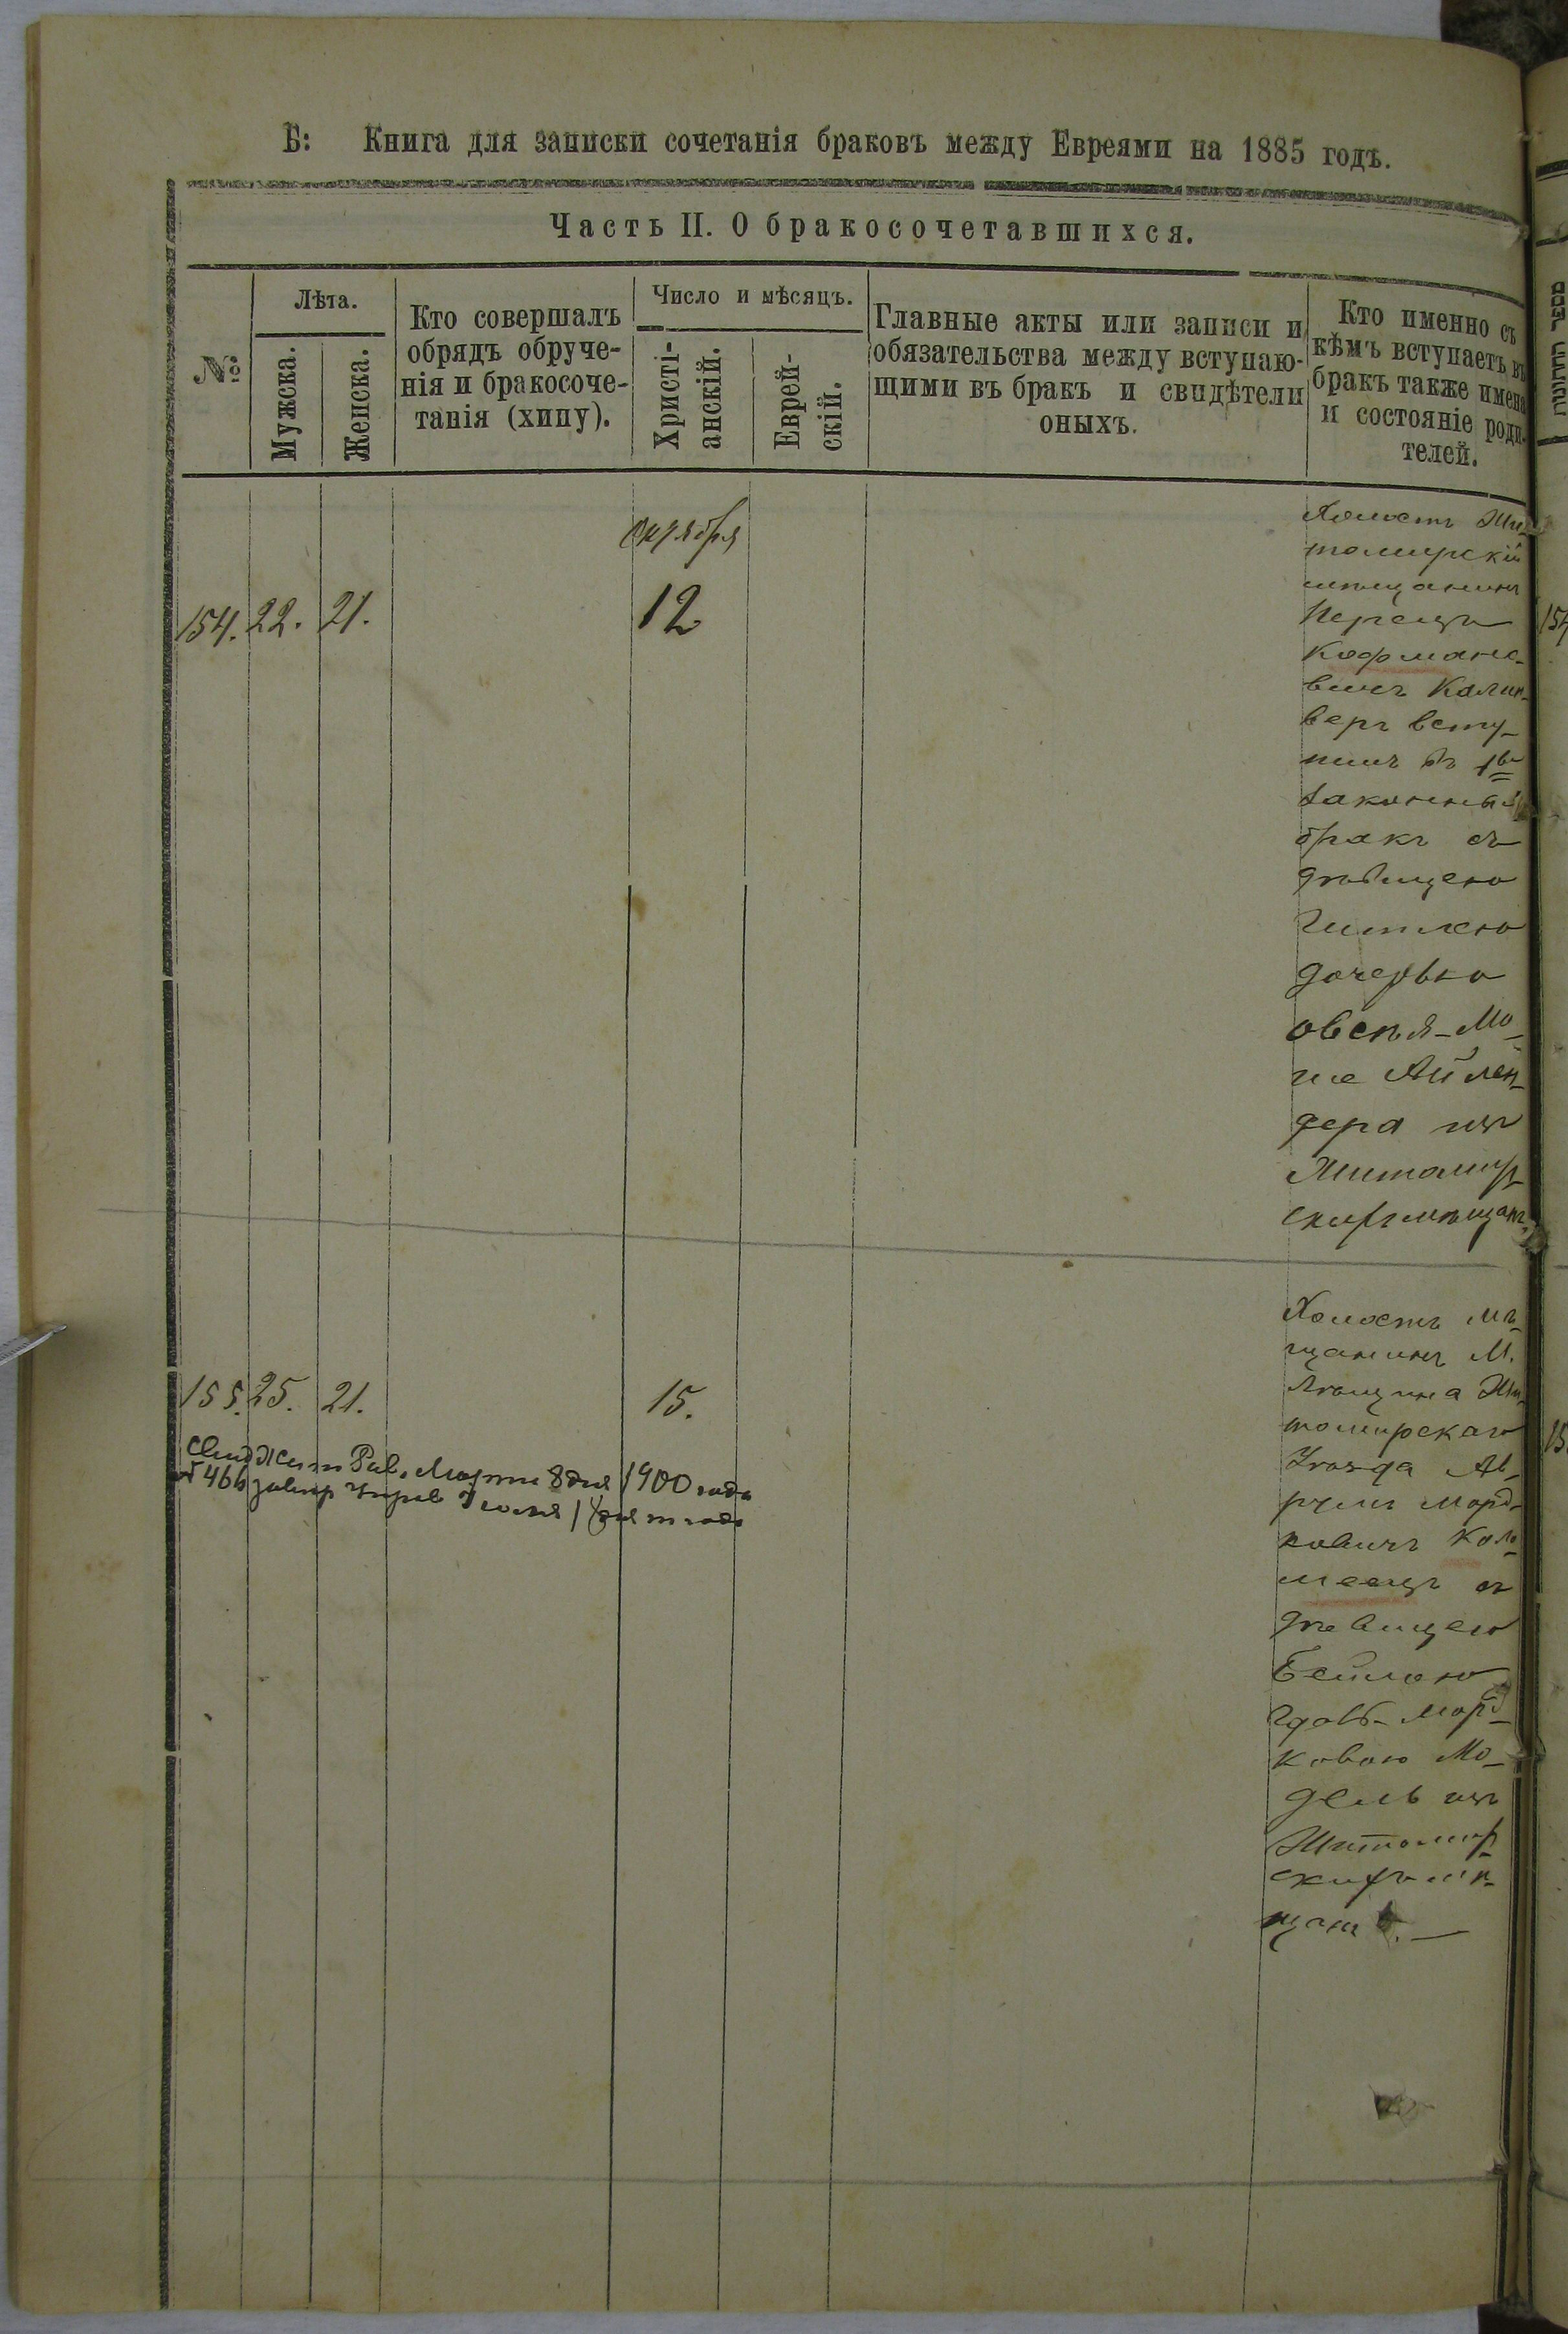 Б: Книга для записки сочетанія браковъ между Евреями на 1885 годъ.
Часть II. О бракосочетавшихся.
№
Лѣта.
Мужска.
Женска.
Кто совершалъ
обрядъ обруче-
нія и бракосоче-
танія (хипу).
Число и мѣсяцъ.
Христі-
анскій.
Еврей-
скій.
Главные акты или записи и
обязательства между вступаю-
щими въ бракъ и свидѣтели
оныхъ.
Кто именно съ
кѣмъ вступаетъ въ
бракъ также имена
и состояніе роди-
телей.
октября
154. 22. 21. 12
Холостъ Жи-
томирскій
мѣщанинъ
Перецъ
Кофмано-
вичъ Калин-
веръ всту-
пилъ въ 1й
законный
бракъ съ
дѣвицею
Гитлею
дочерью
овсѣя-Мо-
ше Айлен-
дера изъ
Житомир-
скихъ мѣщанъ
155. 25. 21. 15.
Холостъ мѣ-
щанинъ М.
Житомирскаго
Уѣзда Ав-
румъМорд-
ковичъ Коло-
меецъ съ
дѣвицею
Бейлою
Морд-
ковою Мо-
дель изъ
Житомир-
скихъ мѣ-
щанъ.
Марта 8 дня 1900 года
466
154
15